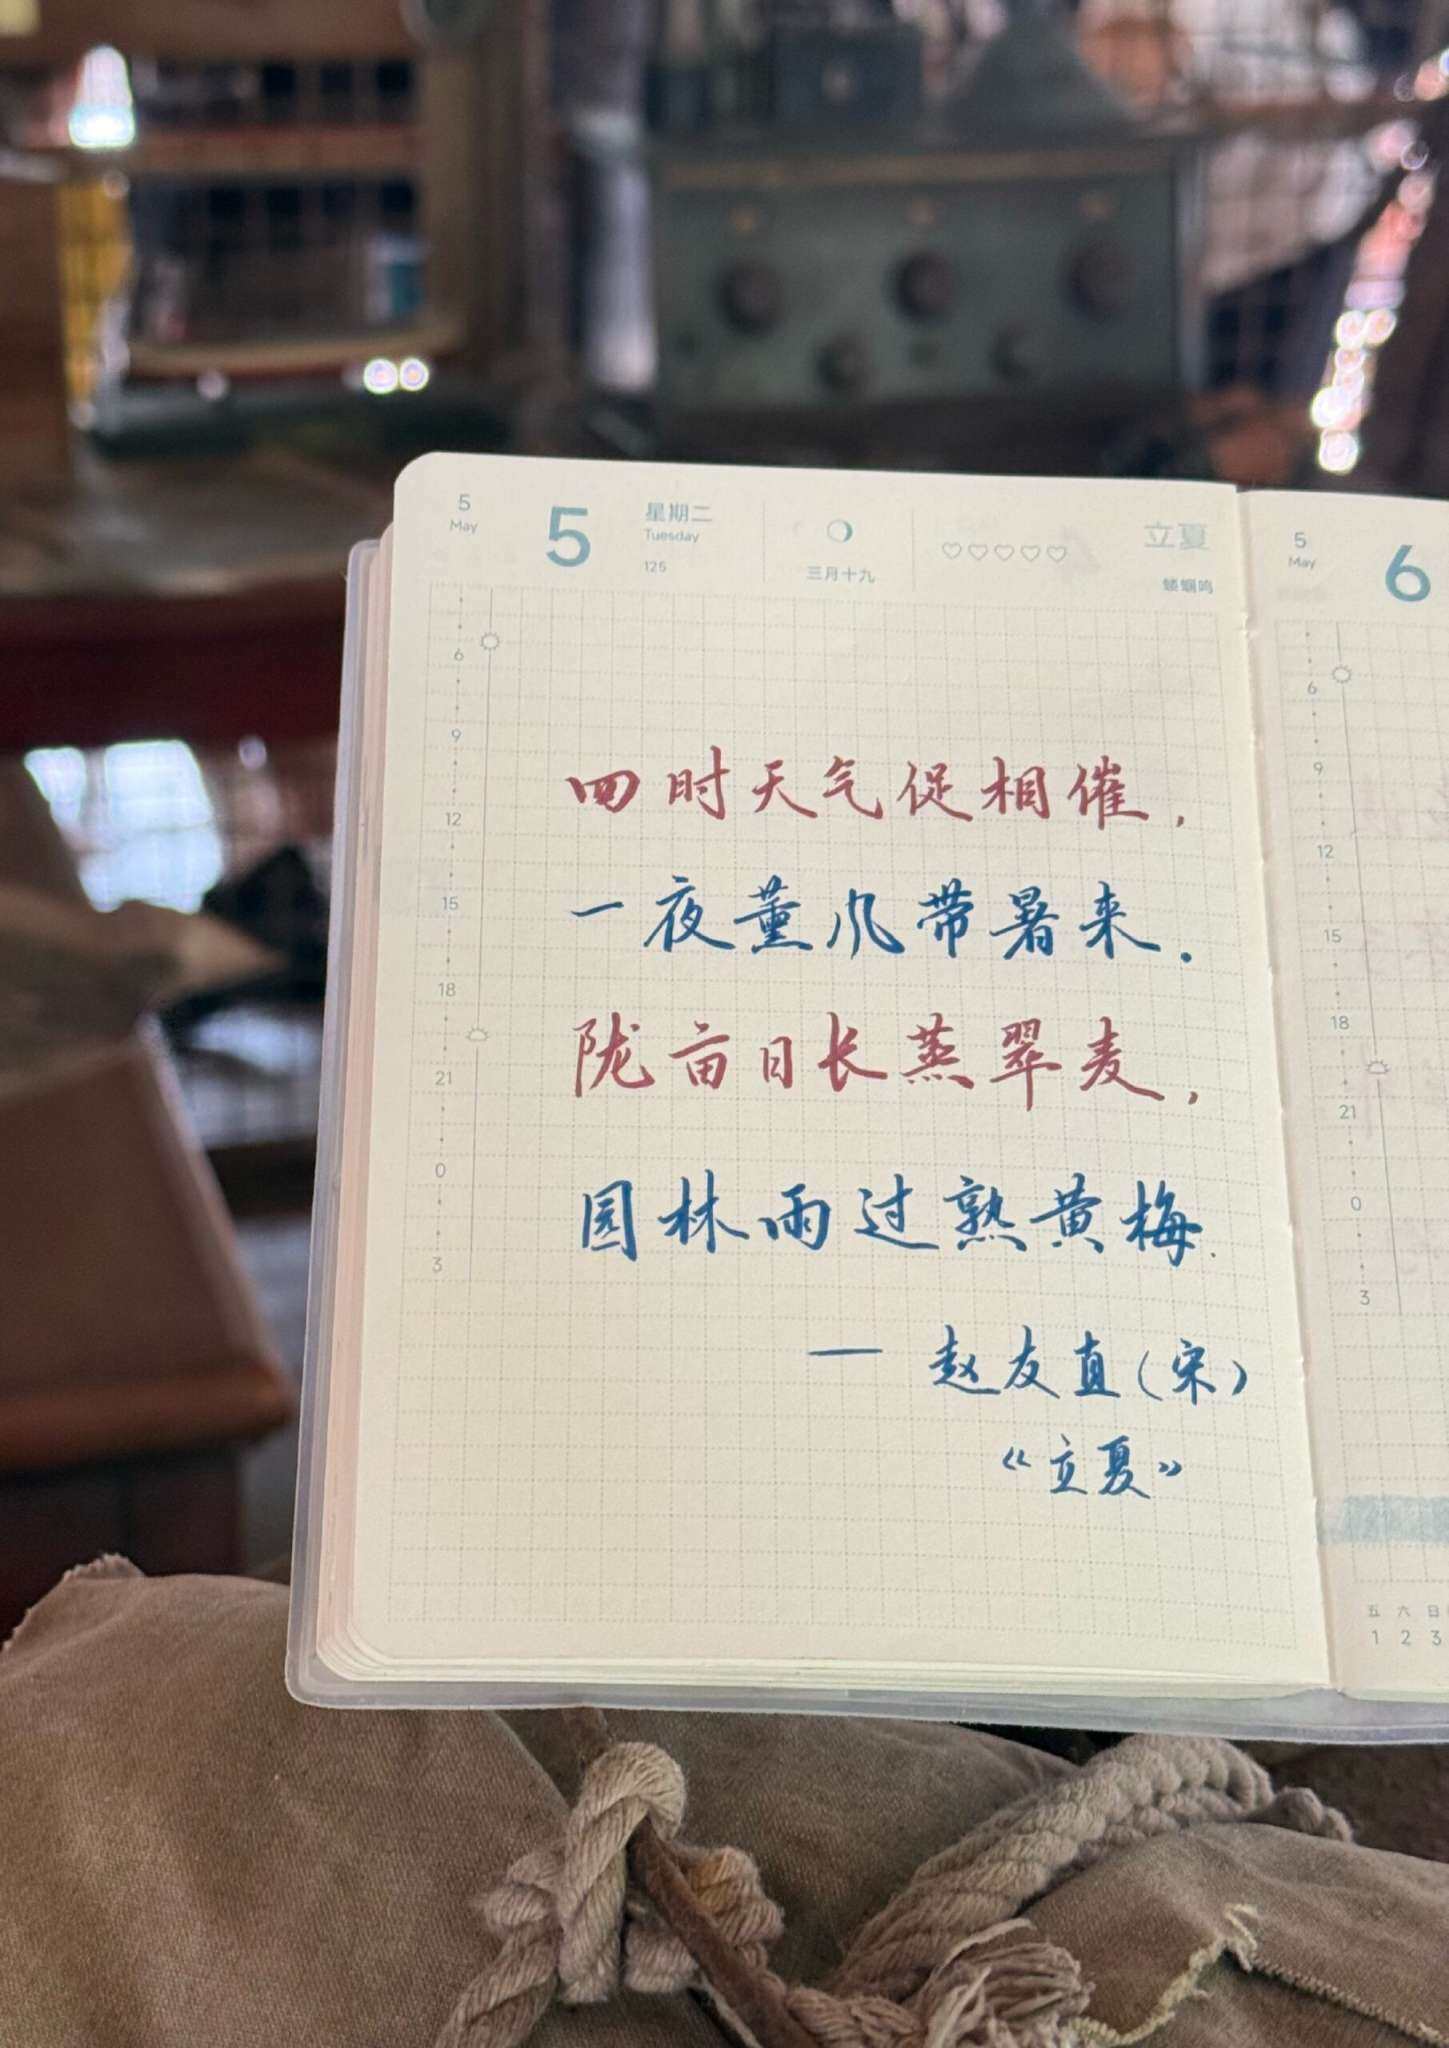 5
May
5
星期二
Tuesday
125
三月十九
立夏
蝼蝈鸣
6
9
12
15
18
21
0
3
四时天气促相催，
一夜薰风带暑来．
陇亩日长蒸翠麦，
园林雨过熟黄梅．
— 赵友直（宋）
《立夏》
5
May
6
6
9
12
15
18
21
0
3
五 六 日
1 2 3